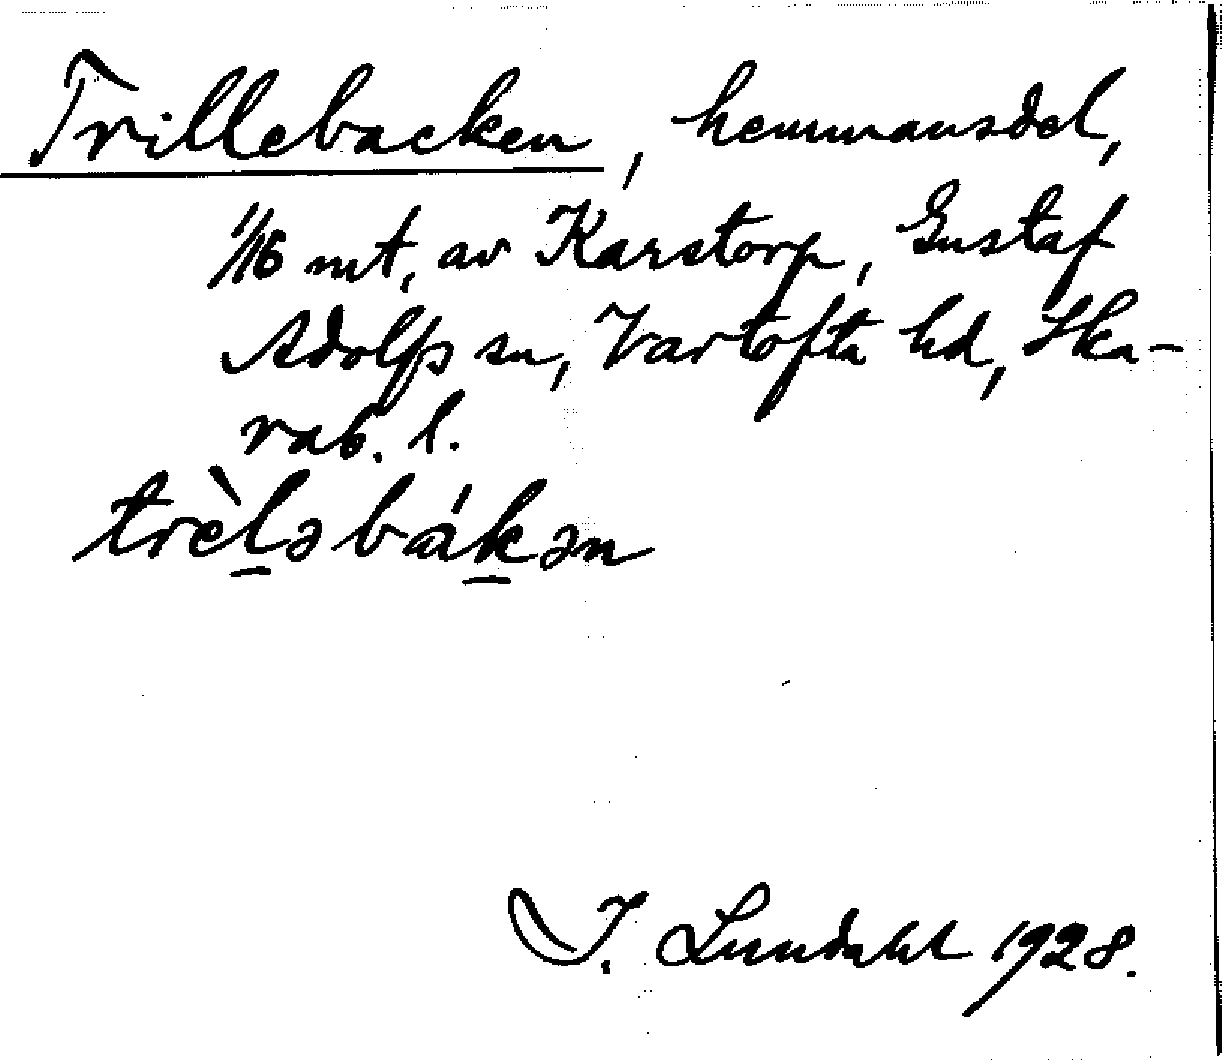 Trillebacken, hemmansdel,
1/16 mt, av Karstorp, Gustaf
Adolfs sn, Vartofta hd, Ska-
rab. l.
trèl̠ə bák̠ən
I. Lundahl 1928.